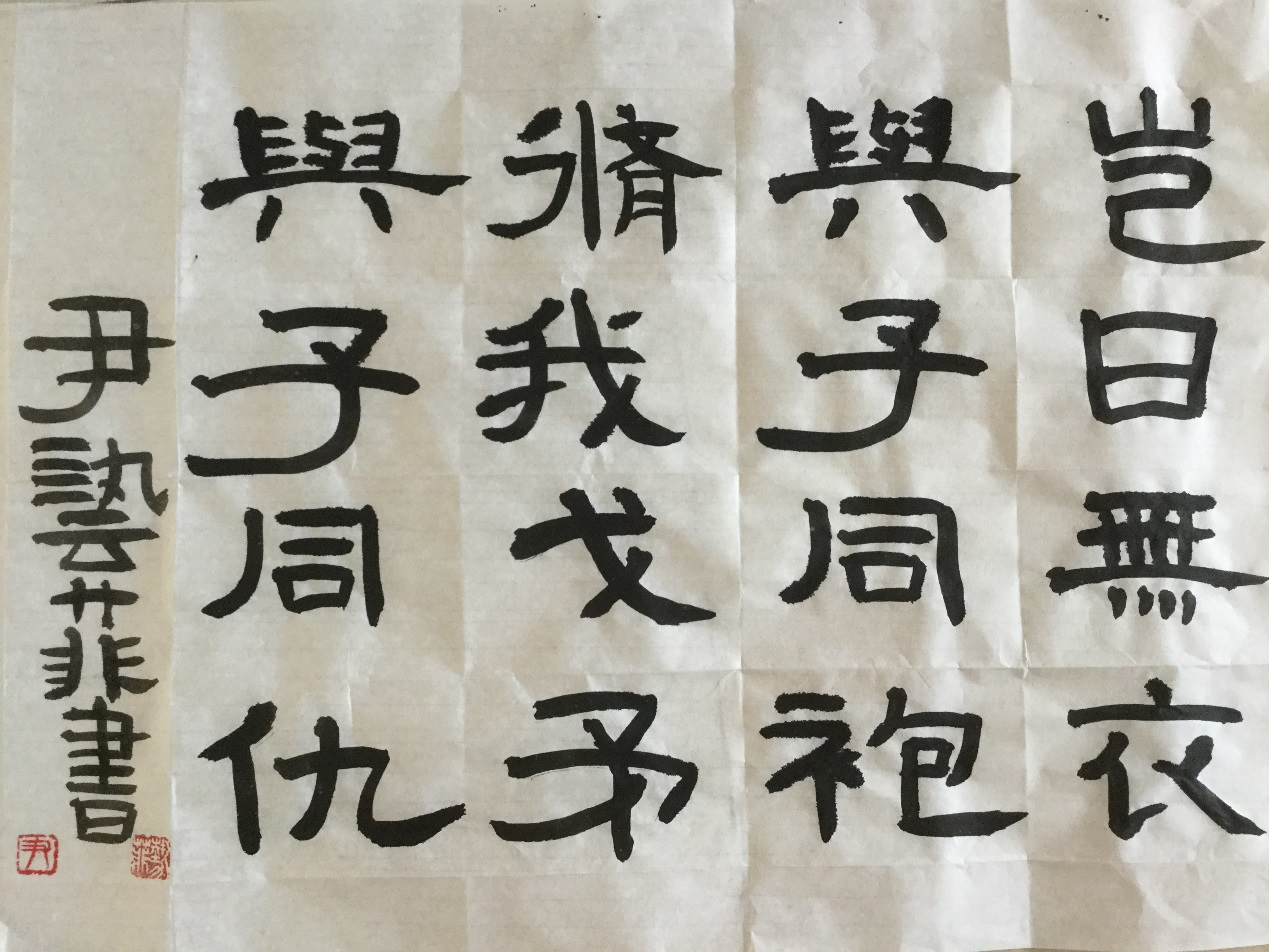 豈曰無衣
與子同袍
脩我戈矛
與子同仇
尹藝菲書
尹